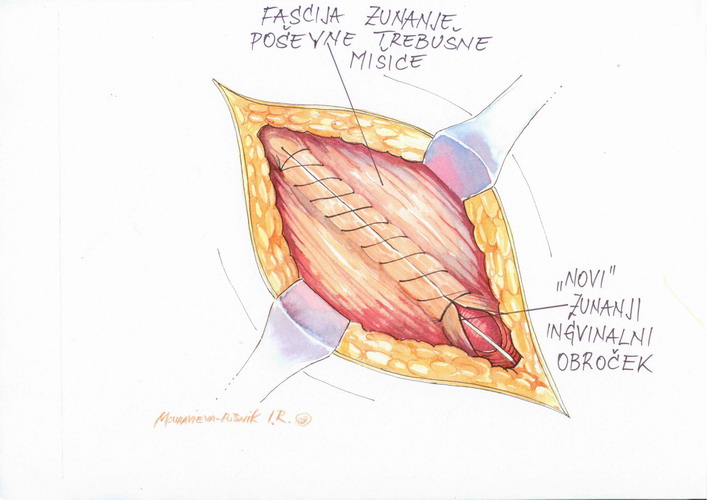 FASCIJA ZUNANJE
POŠEVNE TREBUŠNE
MIŠICE
„NOVI"
ZUNANJI
INGVINALNI
OBROČEK
I.R.